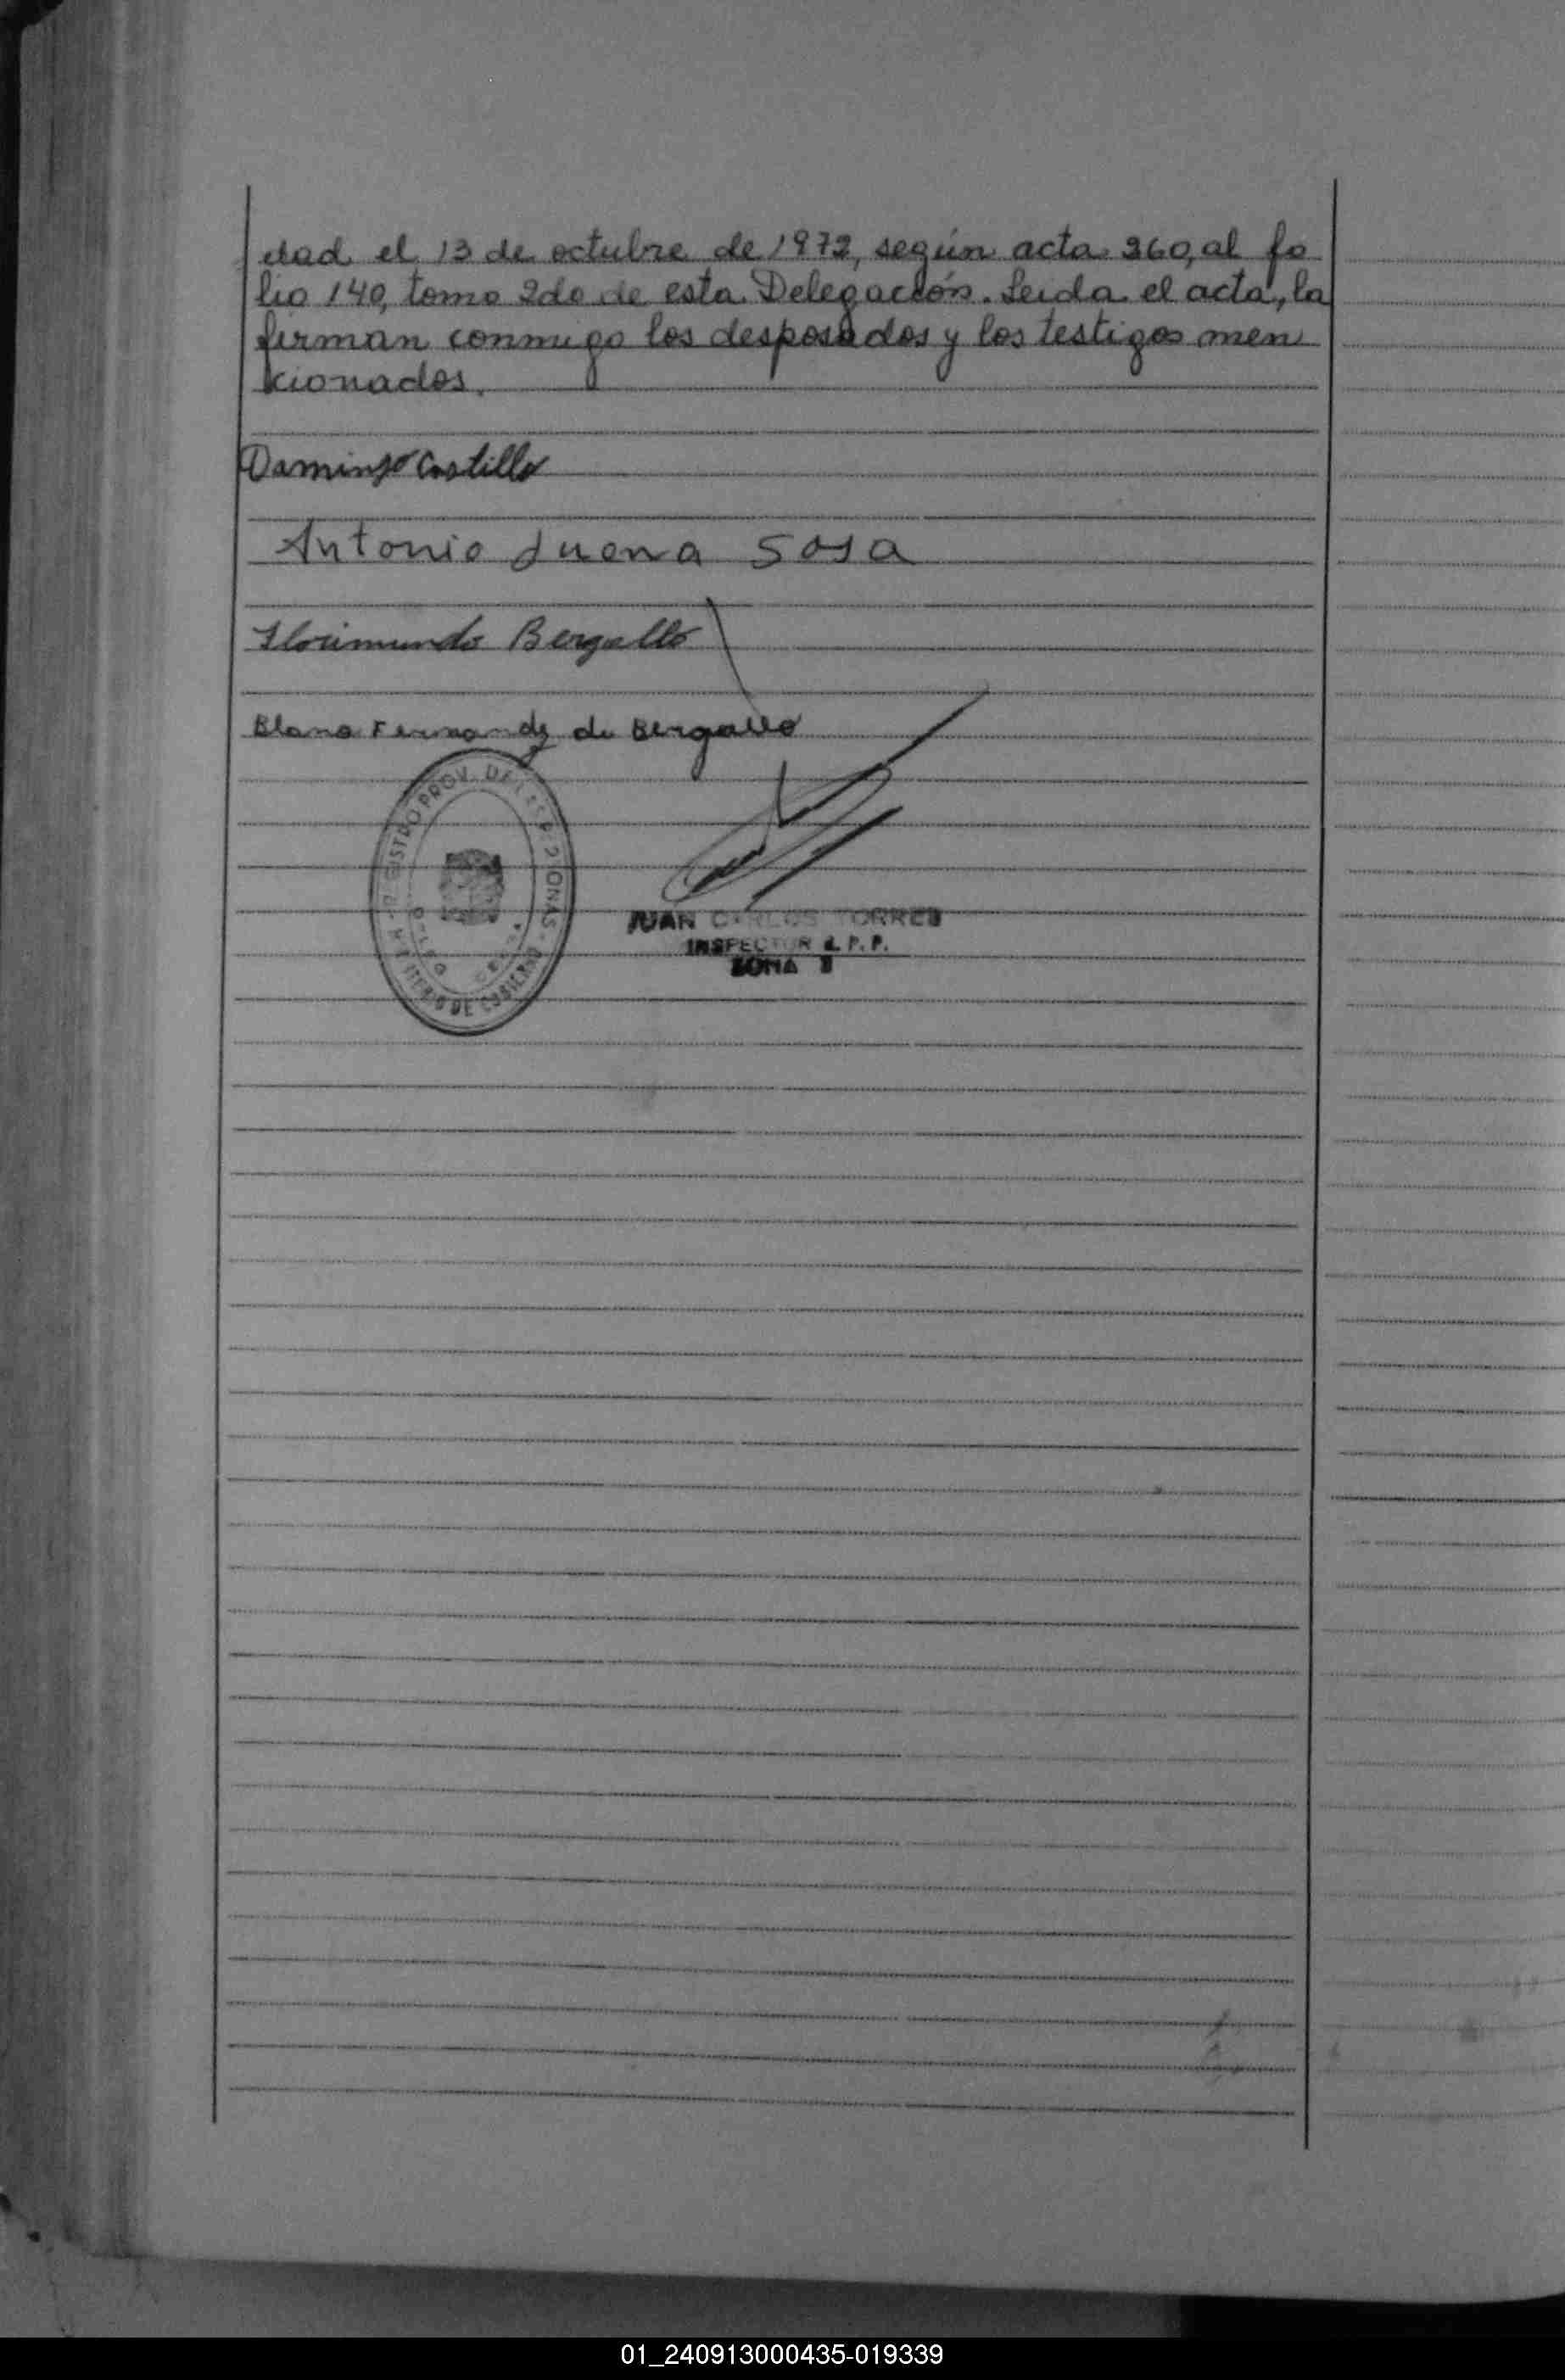 dad el 13 de octubre de 1972, según acta 360, al fo
lio 140, tomo 2do de esta Delegación. Leida el acta, la
firman conmigo los desposados y los testigos men
cionados.
Domingo Castillo
Antonio Juena Sosa
Florimundo Bergallo
Blanca Fernandz de Bergallo
REGISTRO PROV. DE LAS PERSONAS
MINISTERIO DE GOBIERNO
JUAN CARLOS TORRES
INSPECTOR R. P. P.
ZONA
01_240913000435-019339